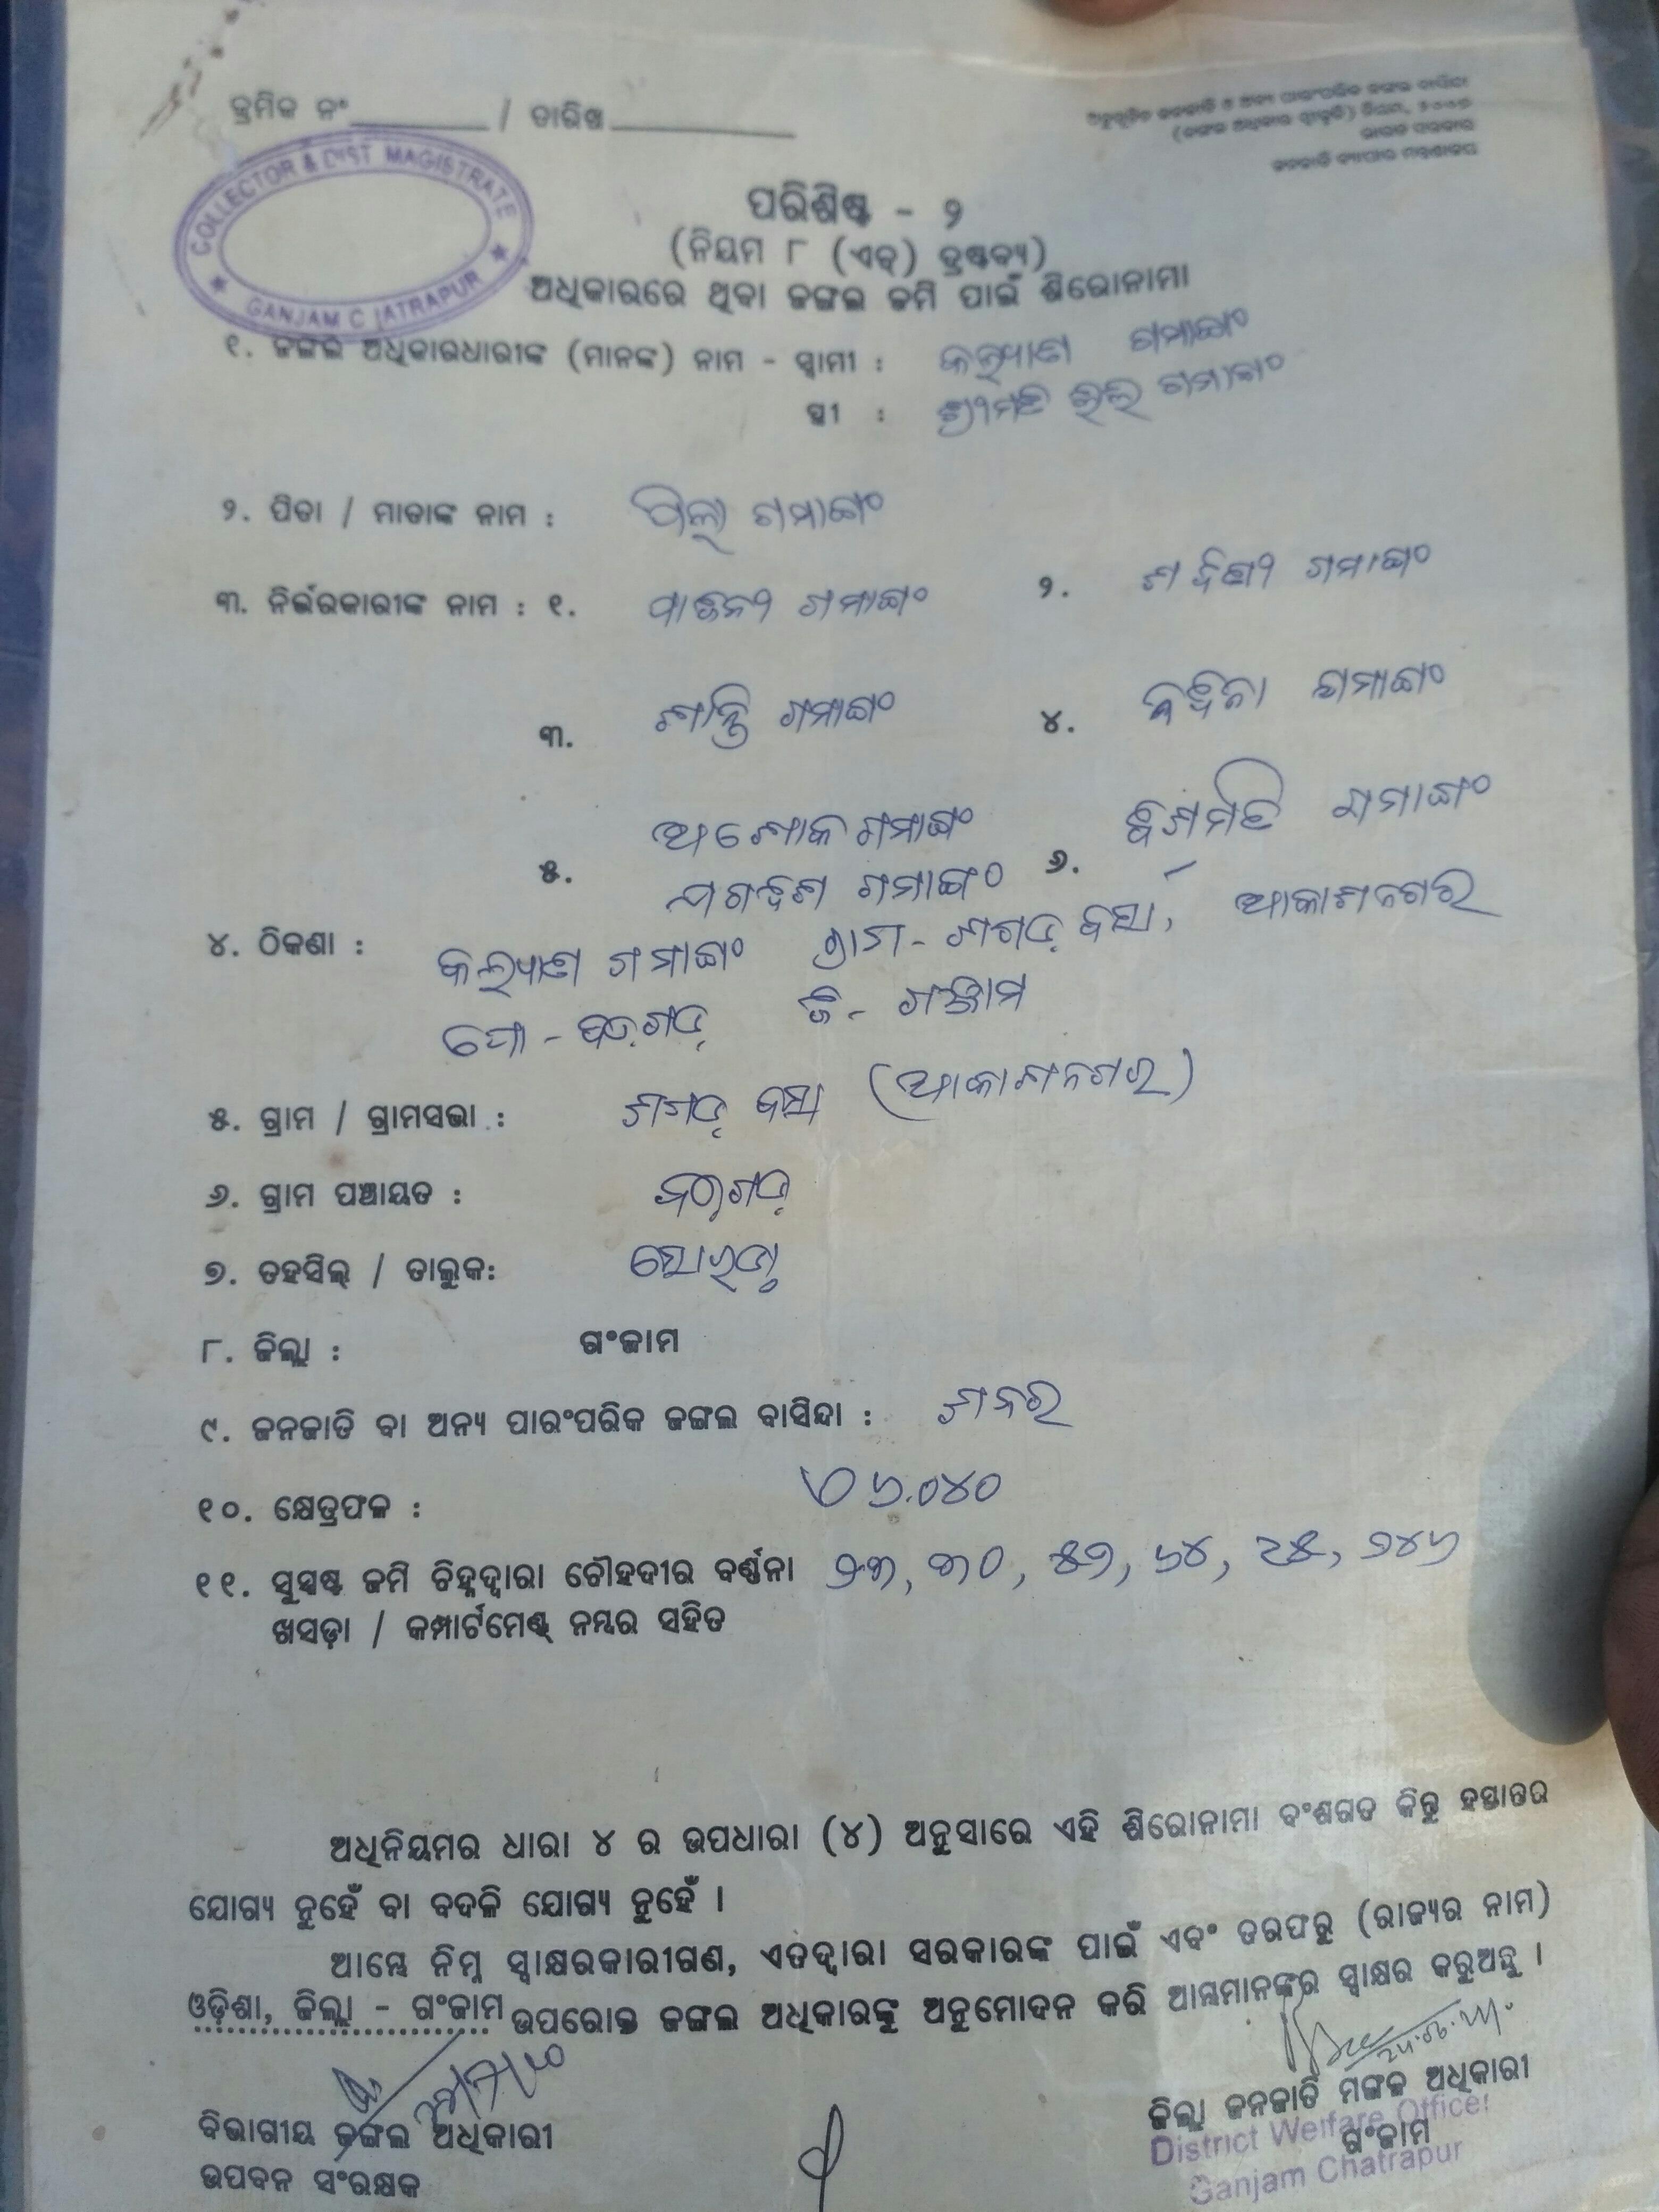 କ୍ରମିକ ନଂ / ତାରିଖ
ଅନୁସୂଚିତ ଜନଜାତି ଓ ଅନ୍ୟ ପାରଂପରିକ ଜଙ୍ଗଲ ବାସିନ୍ଦା
(ଜଙ୍ଗଲ ଅଧିକାର ସ୍ୱୀକୃତି) ନିୟମ, ୨୦୦୭
ଭାରତ ସରକାର
ଜନଜାତି ବ୍ୟାପାର ମନ୍ତ୍ରଣାଳୟ
COLLECTOR & DIST MAGISTRATE
GANJAM CHATRAPUR
ପରିଶିଷ୍ଟ - ୨
(ନିୟମ ୮ (ଏଚ୍) ଦ୍ରଷ୍ଟବ୍ୟ)
ଅଧିକାରରେ ଥିବା ଜଙ୍ଗଲ ଜମି ପାଇଁ ଶିରୋନାମା
୧. ଜଙ୍ଗଲ ଅଧିକାରଧାରୀଙ୍କ (ମାନଙ୍କ) ନାମ - ସ୍ୱାମୀ : କଲ୍ୟାଣ ଗମାଙ୍ଗ
ସ୍ତ୍ରୀ : ଶ୍ରୀମତି ଗମାଙ୍ଗ
୨. ପିତା / ମାତାଙ୍କ ନାମ : ଗମାଙ୍ଗଂ
୩. ନିର୍ଭରକାରୀଙ୍କ ନାମ : ୧. ଗମାଙ୍ଗଂ ୨. ଗମାଙ୍ଗଂ
୩. ଶାନ୍ତି ଗମାଙ୍ଗଂ ୪. ଗମାଙ୍ଗଂ
୫. ଅଶୋକ ଗମାଙ୍ଗଂ ୬. ଗମାଙ୍ଗଂ
ଗମାଙ୍ଗଂ
୪. ଠିକଣା : କଲ୍ୟାଣ ଗମାଙ୍ଗଂ ଗ୍ରାମ - ଶଗଡ଼ ବସା, ଆକାଶନଗର
ପୋ - ବଡ଼ଗଡ଼ ଜି - ଗଞ୍ଜାମ
୫. ଗ୍ରାମ / ଗ୍ରାମସଭା : ଶଗଡ଼ ବସା (ଆକାଶନଗର)
୬. ଗ୍ରାମ ପଞ୍ଚାୟତ : ବଡ଼ଗଡ଼
୭. ତହସିଲ୍ / ତାଲୁକ: ସୋରଡ଼ା
୮. ଜିଲ୍ଲା : ଗଂଜାମ
୯. ଜନଜାତି ବା ଅନ୍ୟ ପାରଂପରିକ ଜଙ୍ଗଲ ବାସିନ୍ଦା : ଶବର
୧୦. କ୍ଷେତ୍ରଫଳ : ୬.୦୪୦
୧୧. ସୁସ୍ପଷ୍ଟ ଜମି ଚିହ୍ନଦ୍ୱାରା ଚୌହଦୀର ବର୍ଣ୍ଣନା ୨୩, ୩୦, ୫୭, ୬୪, ୨୫, ୨୪୬
ଖସଡ଼ା / କମ୍ପାର୍ଟମେଣ୍ଟ୍ ନମ୍ଭର ସହିତ
ଅଧିନିୟମର ଧାରା ୪ ର ଉପଧାରା (୪) ଅନୁସାରେ ଏହି ଶିରୋନାମା ବଂଶଗତ କିନ୍ତୁ ହସ୍ତାନ୍ତର
ଯୋଗ୍ୟ ନୁହେଁ ବା ବଦଳି ଯୋଗ୍ୟ ନୁହେଁ ।
ଆମ୍ଭେ ନିମ୍ନ ସ୍ୱାକ୍ଷରକାରୀଗଣ, ଏତଦ୍ୱାରା ସରକାରଙ୍କ ପାଇଁ ଏବଂ ତରଫରୁ (ରାଜ୍ୟର ନାମ)
ଓଡ଼ିଶା, ଜିଲ୍ଲା - ଗଂଜାମ ଉପରୋକ୍ତ ଜଙ୍ଗଲ ଅଧିକାରଙ୍କୁ ଅନୁମୋଦନ କରି ଆମ୍ଭମାନଙ୍କର ସ୍ୱାକ୍ଷର କରୁଅଛୁ ।
ବିଭାଗୀୟ ଜଙ୍ଗଲ ଅଧିକାରୀ
ଉପବନ ସଂରକ୍ଷକ
ଜିଲ୍ଲା ଜନଜାତି ମଙ୍ଗଳ ଅଧିକାରୀ
ଗଂଜାମ
District Welfare Officer
Ganjam Chatrapur